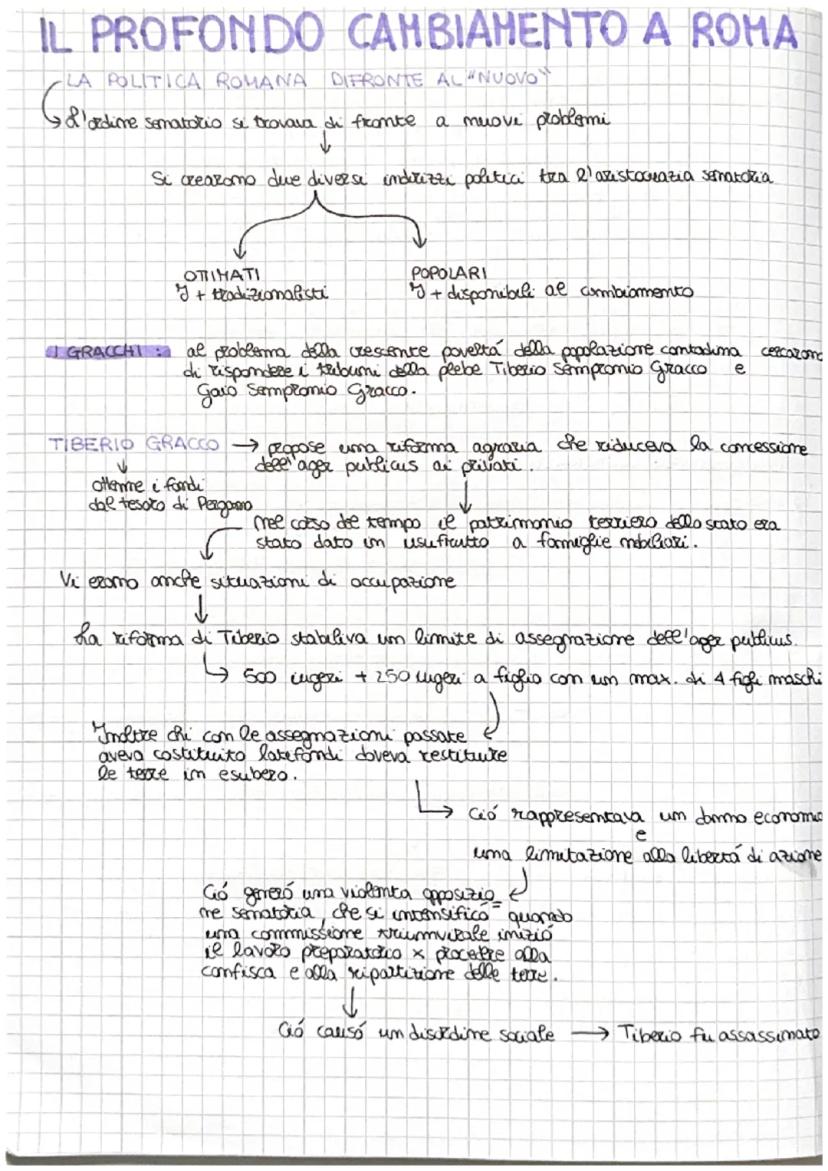 IL PROFONDO CAMBIAMENTO A ROMA
LA POLITICA ROMANA DIFRONTE AL "NUOVO"
L'ordine senatorio si trovava di fronte a nuovi problemi
Si crearono due diversi indirizzi politici tra l'aristocrazia senatoria
OTTIMATI POPOLARI
I + tradizionalisti I + disponibili al cambiamento
I GRACCHI: al problema della crescente povertá della popolazione contadina cercarono
di rispondere i tribuni della plebe Tiberio Sempronio Gracco e
Gaio Sempronio Gracco.
TIBERIO GRACCO → propose una riforma agraria che riduceva la concessione
dell'ager publicus ai privati.
ottenne i fondi
dal tesoro di Pergamo
nel corso del tempo il patrimonio terriero dello stato era
stato dato in usufrutto a famiglie nobiliari.
Vi erano anche situazioni di occupazione
La riforma di Tiberio stabiliva un limite di assegnazione dell'ager publicus.
500 iugeri + 250 iugeri a figlio con un max. di 4 figli maschi
Inoltre chi con le assegnazioni passate
aveva costituito latifondi doveva restituire
le terre in esubero.
Ció rappresentava un danno economico
e
una limitazione alla libertá di azione
Ció generó una violenta opposizio=
ne senatoria, che si intensificó quando
una commissione triumvirale inizió
il lavoro preparatorio x procedere alla
confisca e alla ripartizione delle terre.
Ció causó un disordine sociale → Tiberio fu assassinato